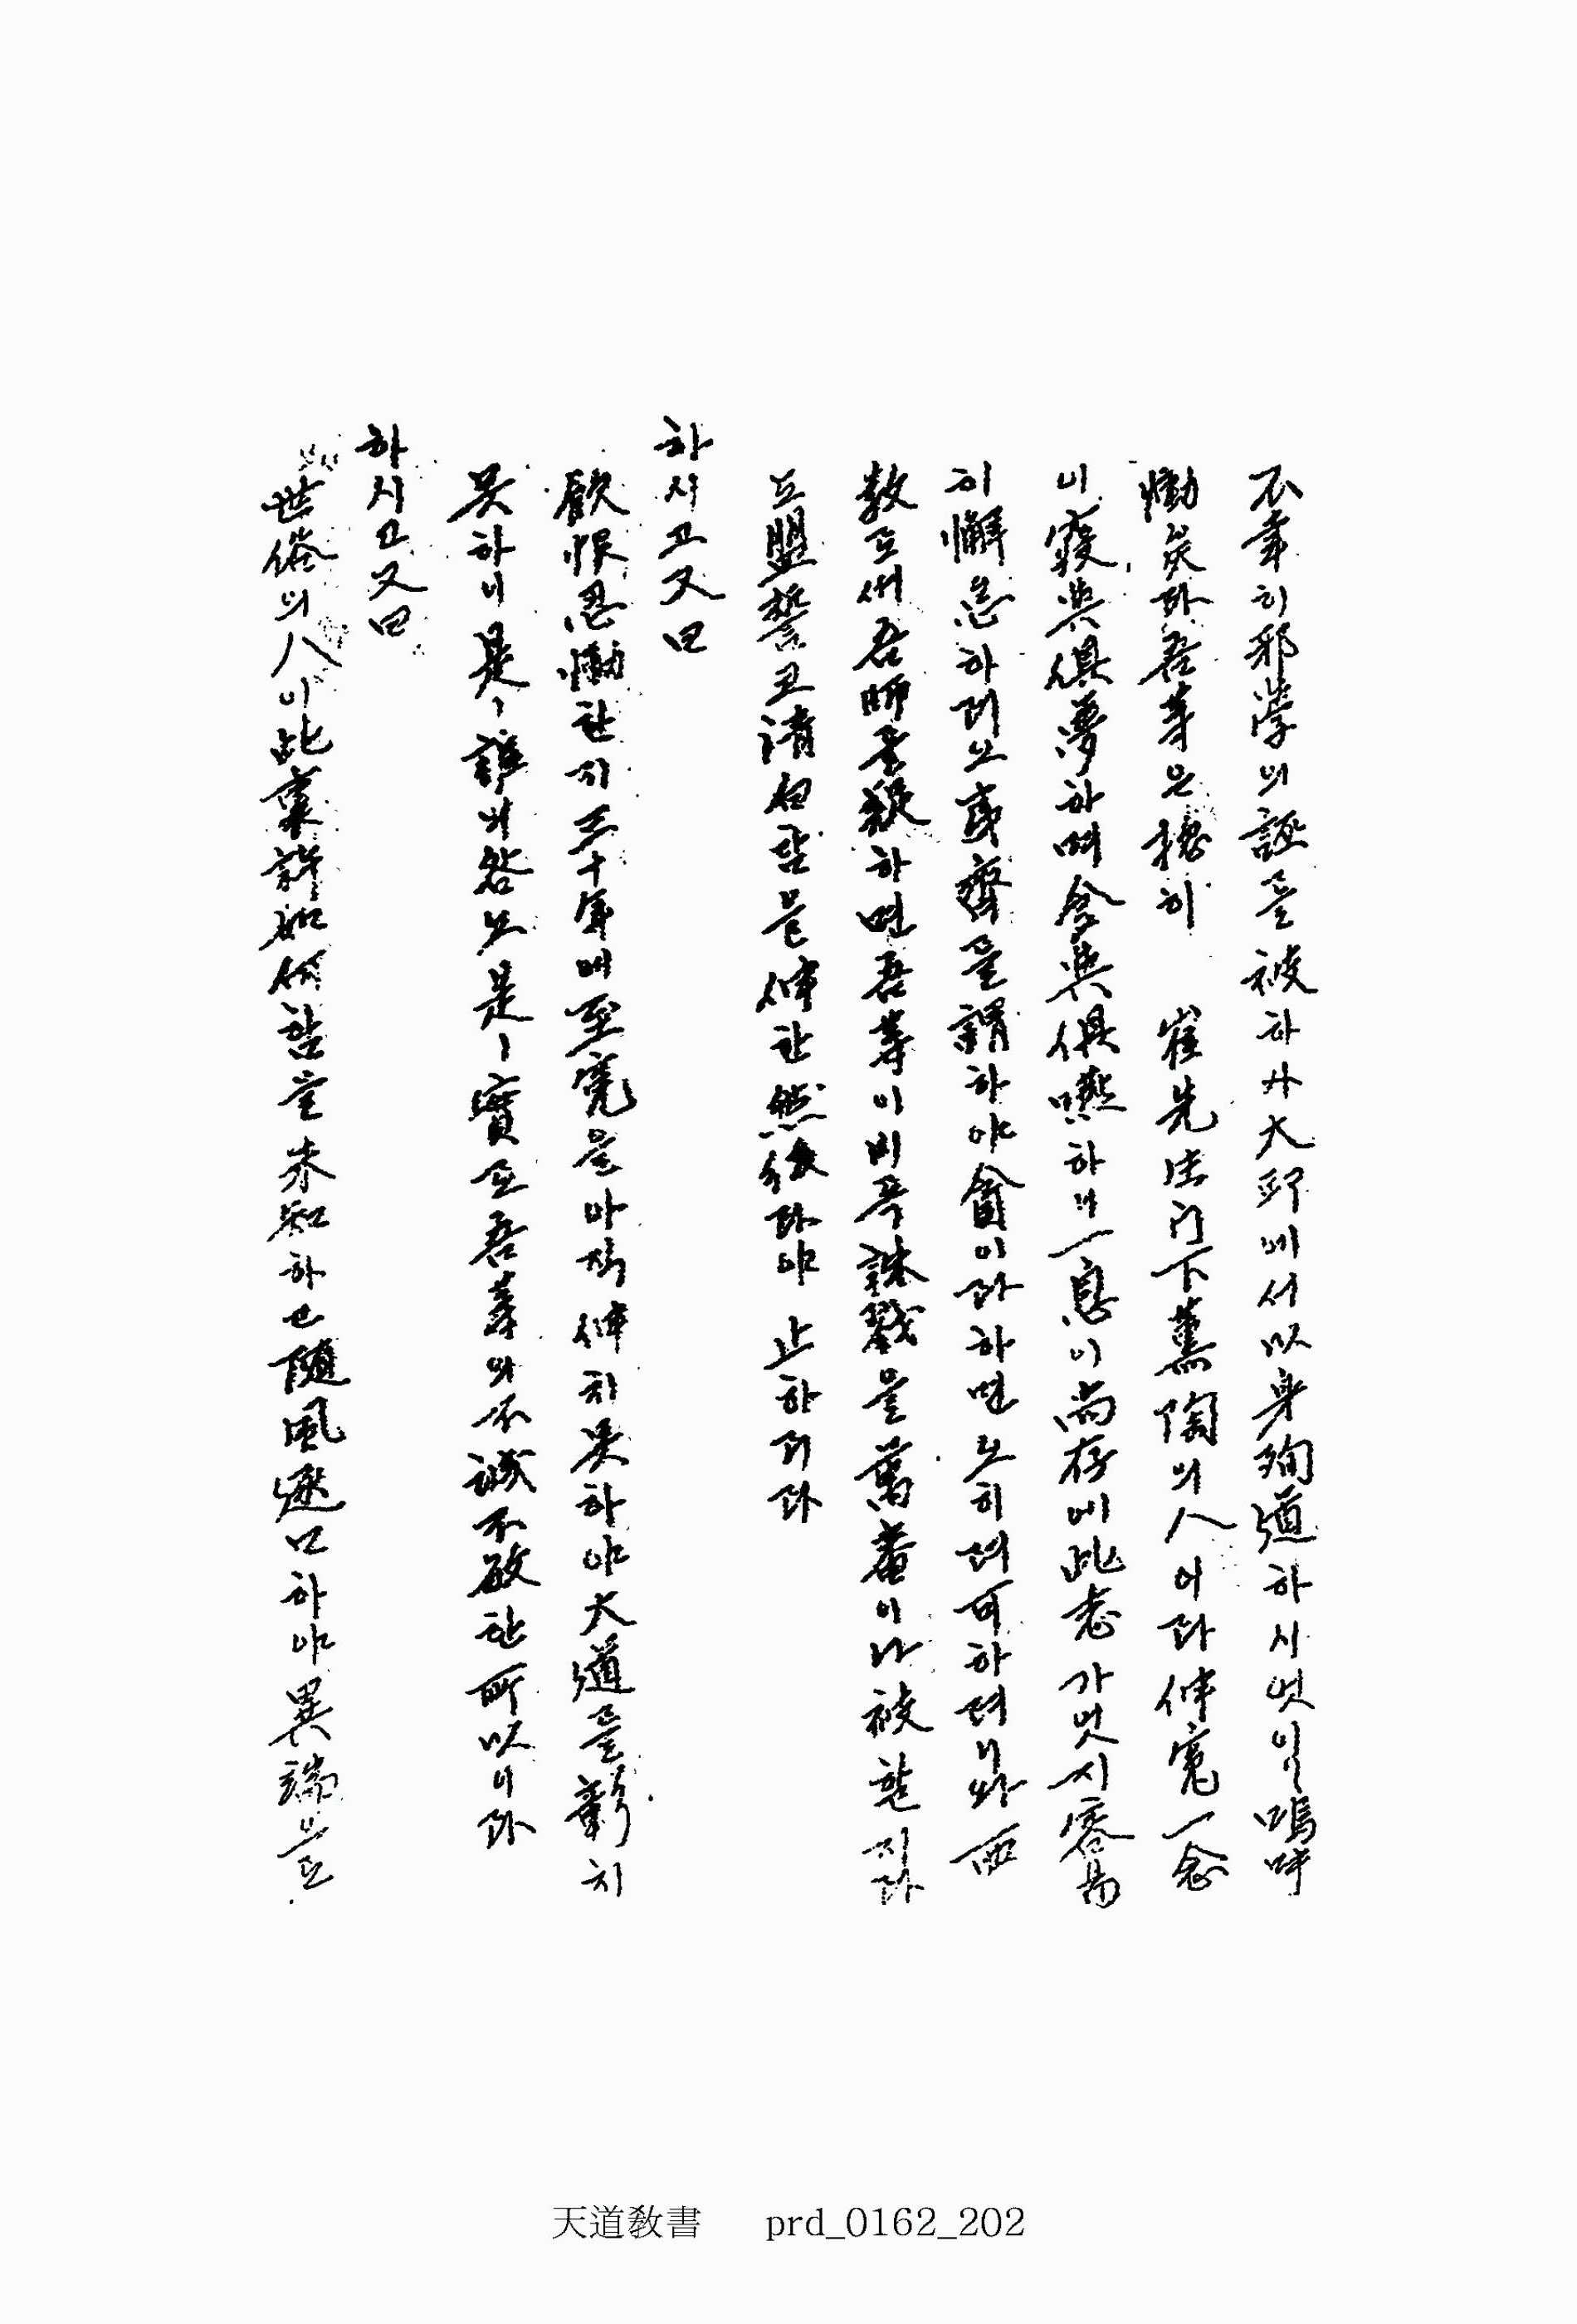 不幸히邪學의誣를被하사大邱에서以身殉道하시엇이니嗚呼
慟矣라吾等은擧히 崔先生門下薰陶의人이라伸寃一念
이寢與俱夢하며食與俱嚥하니一息이尙存에此志가엇지容易
히懈怠하리오或齊를謂하야貪이라하면오히려可하려니와西
敎로써吾師를疑하면吾等이비록誅戮을萬番이나被할지라
도盟誓코淸白함을伸한然後라야止하리라
하시고又曰
飮恨忍慟한지三十年에至寃을아직伸치못하야大道를彰치
못하니是誰의咎오是實로吾等의不誠不敬한所以니라
하시고又曰
世俗의人이此稟許如何함을未知하고隨風逐口하야異端으로
天道敎書 prd_0162_202